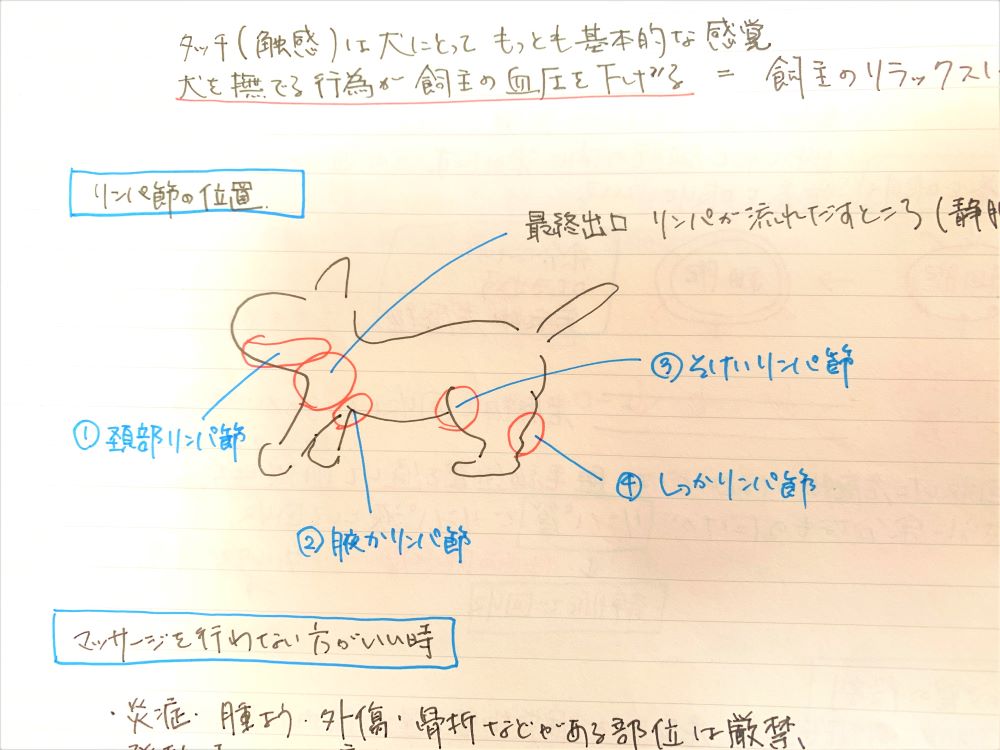 タッチ(触感)は犬にとって もっとも基本的な感覚
犬を撫でる行為が飼主の血圧を下げる = 飼主のリラックス
リンパ節の位置
最終出口 リンパが流れだすところ(静
①頚部リンパ節
③そけいリンパ節
④しっかリンパ節
②腋かリンパ節
マッサージを行わない方がいい時
・炎症・腫よう・外傷・骨折などがある部位は厳禁、